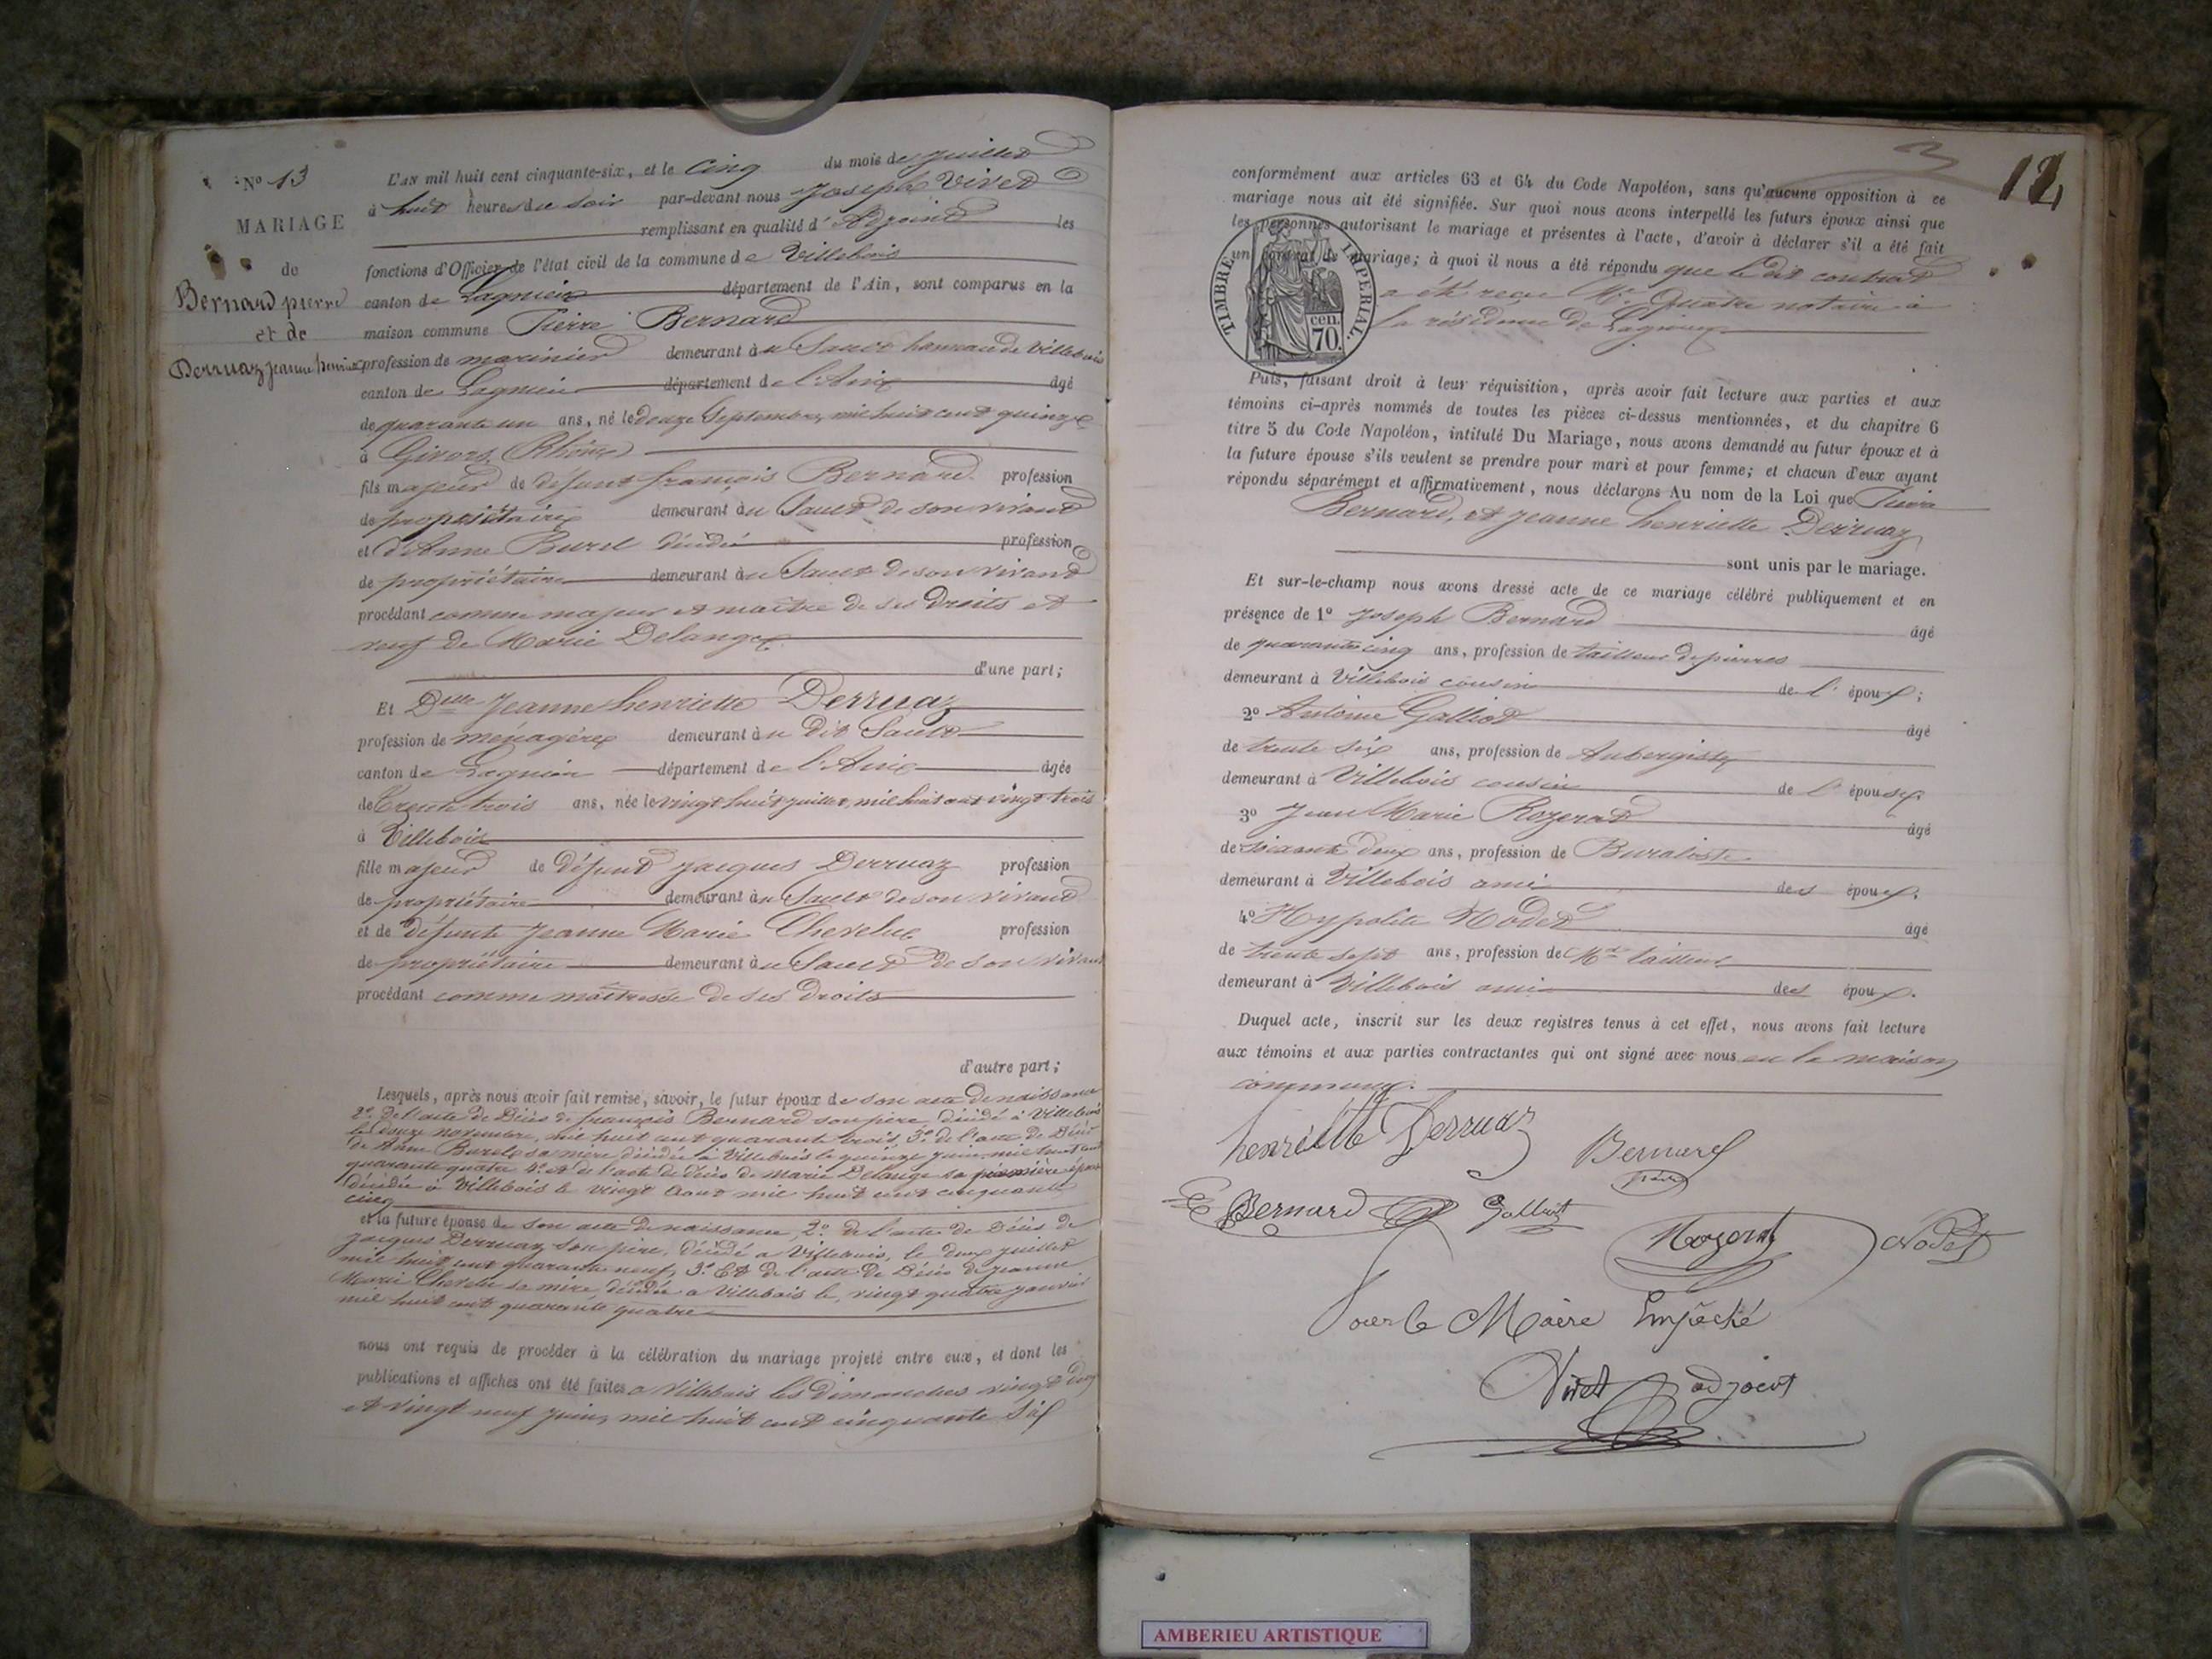 N° 13
MARIAGE
de
Bernard pierre
et de
Derruaz jeanne henriette
L'AN mil huit cent cinquante-six, et le cinq du mois de juillet
à huit heures du soir par-devant nous Joseph Vivet
remplissant en qualité d'Adjoint les
fonctions d'Officier de l'état civil de la commune de Villebois
canton de Lagnieu département de l'Ain, sont comparus en la
maison commune Pierre Bernard
profession de marinier demeurant au Sault hameau de Villebois
canton de Lagnieu département de l'Ain âgé
de quarante un ans, né le douze Septembre, mil huit cent quinze
à Givors, Rhône
fils majeur de défunt françois Bernard profession
de propriétaire demeurant au Sault de son vivant
et d'Anne Burel décédée profession
de propriétaire demeurant au Sault de son vivant
procédant comme majeur et maître de ses Droits et
veuf de Marie Delange
d'une part;
Et Delle Jeanne henriette Derruaz
profession de ménagère demeurant au dit Sault
canton de Lagnieu département de l'Ain âgée
de Trente trois ans, née le vingt huit juillet, mil huit cent vingt trois
à Villebois
fille majeur de défunt Jacques Derruaz profession
de propriétaire demeurant au Sault de son vivant
et de défunte Jeanne Marie Chevelu profession
de propriétaire demeurant au Sault de son vivant
procédant comme maîtresse de ses Droits
d'autre part;
Lesquels, après nous avoir fait remise, savoir, le futur époux de son acte de naissance
2° de l'acte de Décès de françois Bernard son père, décédé à Villebois
le douze novembre, mil huit cent quarante trois, 3° de l'acte de Décès
de Anne Burel sa mère décédée à Villebois le quinze juin mil huit cent
quarante quatre 4° et de l'acte de Décès de marie Delange sa première épouse
décédée à Villebois le vingt Aout mil huit cent cinquante
cinq
et la future épouse de son acte de naissance, 2° de l'acte de Décès de
Jacques Derruaz son père, décédé à Villebois, le deux juillet
mil huit cent quarante neuf, 3° Et de l'acte de Décès de Jeanne
Marie Chevelu sa mère, décédée à Villebois le vingt quatre janvier
mil huit cent quarante quatre
nous ont requis de procéder à la célébration du mariage projeté entre eux, et dont les
publications et affiches ont été faites à Villebois les Dimanches vingt deux
et vingt neuf juin, mil huit cent cinquante six
12
conformément aux articles 63 et 64 du Code Napoléon, sans qu'aucune opposition à ce
mariage nous ait été signifiée. Sur quoi nous avons interpellé les futurs époux ainsi que
les personnes autorisant le mariage et présentes à l'acte, d'avoir à déclarer s'il a été fait
un contrat de mariage; à quoi il nous a été répondu que le dit contrat
a été reçu Me notaire à
la résidence de Lagnieu
TIMBRE IMPERIAL.
cen.
70.
Puis, faisant droit à leur réquisition, après avoir fait lecture aux parties et aux
témoins ci-après nommés de toutes les pièces ci-dessus mentionnées, et du chapitre 6
titre 5 du Code Napoléon, intitulé Du Mariage, nous avons demandé au futur époux et à
la future épouse s'ils veulent se prendre pour mari et pour femme; et chacun d'eux ayant
répondu séparément et affirmativement, nous déclarons Au nom de la Loi que Pierre
Bernard, et Jeanne henriette Derruaz
sont unis par le mariage.
Et sur-le-champ nous avons dressé acte de ce mariage célébré publiquement et en
présence de 1° Joseph Bernard âgé
de quarante cinq ans, profession de tailleur de pierres
demeurant à Villebois cousin de l'époux;
2° Antoine Galliot âgé
de trente six ans, profession de Aubergiste
demeurant à Villebois cousin de l'épouse.
3° Jean Marie Rozerat âgé
de soixante deux ans, profession de Buraliste
demeurant à Villebois ami des époux.
4° Hypolite Nodet âgé
de trente sept ans, profession de Md tailleur
demeurant à Villebois ami des époux.
Duquel acte, inscrit sur les deux registres tenus à cet effet, nous avons fait lecture
aux témoins et aux parties contractantes qui ont signé avec nous en la maison
commune.
henriette Derruaz Bernard
E Bernard Galliot Rozerat Nodet
Pour le Maire Empêché
Vivet adjoint
AMBERIEU ARTISTIQUE